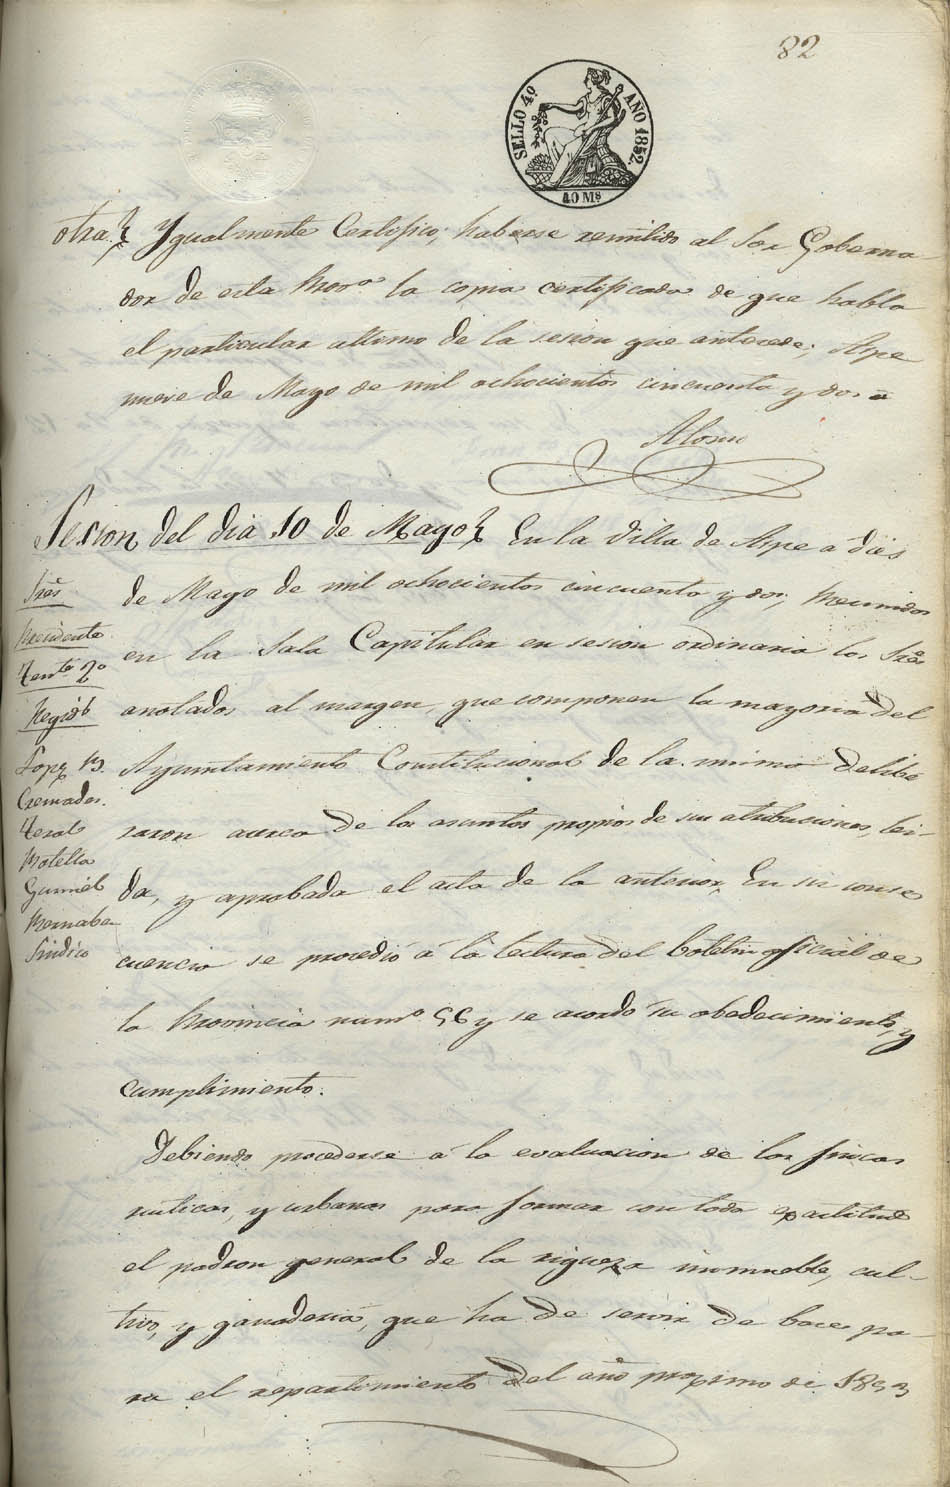 82
SELLO 4º AÑO 1852.
40 Ms
otra. Ygualmente Certifico; haberse remitido al Sor Goberna-
dor de esta Prova la copia certificada de que habla
el particular ultimo de la sesion que antecede; Aspe
nueve de Mayo de mil ochocientos cincuenta y dos =
Alonso
Sesion del dia 10 de Mayo En la Villa de Aspe a dies
de Mayo de mil ochocientos cincuenta y dos; Reunidos
en la Sala Capitular en sesion ordinaria los Sres
anotados al margen, que componen la mayoria del
Ayuntamiento Constitucional de la misma delibe
raron acerca de los asuntos propios de sus atribuciones, lei-
da, y aprobada el acta de la anterior. En su conse
cuencia se procedió á la lectura del boletin oficial de
la Provincia numo 56 y se acordó su obedecimiento, y
cumplimiento.
Debiendo procederse á la evaluacion de las fincas
rusticas, y urbanas para formar con toda exactitud
el padron general de la riqueza inmueble, cul-
tivo, y ganaderia, que ha de servir de base pa-
ra el repartimiento del año proximo de 1853
Sres
Presidente
Tente 2º
Regids
Lopez B.
Cremades
Terol
Botella
Gumiel
Bernabe
Sindico